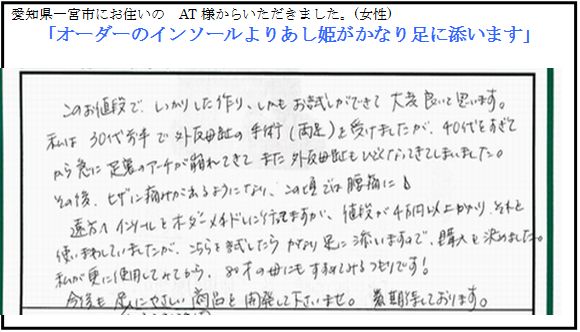 愛知県一宮市にお住いの　AT様からいただきました。(女性)
「オーダーのインソールよりあし姫がかなり足に添います」
このお値段で、しっかりした作り、しかもお試しができて 大変良いと思います。
私は 30代前半で外反母趾の手術(両足)を受けましたが、40代をすぎて
から急に足裏のアーチが崩れてきて また 外反母趾もひどくなってきてしまいました。
その後、ヒザに痛みがあるようになり、この頃では腰痛に
遠方へインソールをオーダーメイドしに行ってますが、値段が4万円以上かかり、それを
使いまわしていましたが、こちらを試したら かなり足に添いますので、購入を決めました。
私が更に使用してみてから、80才の母にもすすめてみるつもりです!
今後も 足にやさしい商品を開発して下さいませ。期待しております。